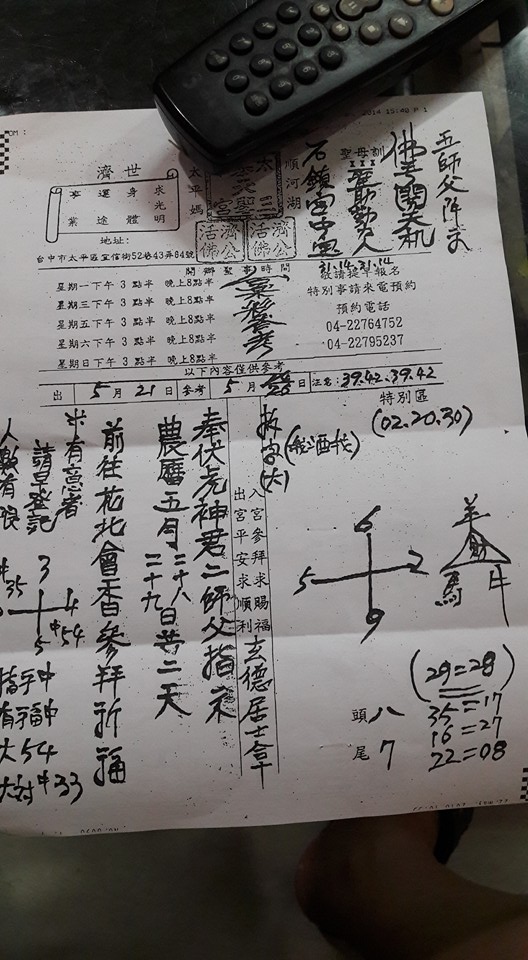 2014 15:40 P 1
五師父降示
佛手開天机
聖母訓
石鎮宮中宮
31.14.31.14
順河湖
太平媽
濟世
求光明
身體
運途
事業
濟公活佛
濟公活佛
地址:
台中市太平區宜信街52巷43弄64號
開辦聖事時間
星期一下午 3 點半 晚上8點半
星期三下午 3 點半 晚上8點半
星期五下午 3 點半 晚上8點半
星期六下午 3 點半 晚上8點半
星期日下午 3 點半 晚上8點半
敬請提早報名
特別事請來電預約
預約電話
04-22764752
04-22795237
以下內容僅供參考
出 5 月 21 日 參考 5 月 日 注名: 39.42.39.42
特別區
(02.20.30)
6
5 2
9
羊
財
馬 牛
(29=28)
35=17
16=27
22=08
頭 八
尾 7
入宮參拜求賜福
出宮平安求順利
玄德居士拿
奉伏虎神君二師父指示
農曆五月二十八二十九日共二天
前往花北會香參拜祈福
有意者
請早登記
人數有限
35 3
4
5 54
大54
33